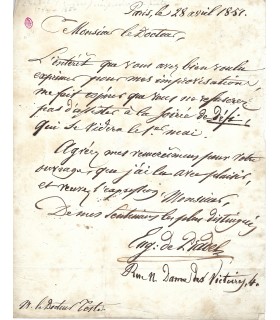 Paris, le 28 avril 1851.
Monsieur le Docteur,
L'intérêt que vous avez bien voulu
exprimer pour mes improvisations,
me fait espérer que vous ne refuserez
pas d'assister à la soirée de défi
qui se videra le 1er mai
Agréez mes remerciemens pour votre
ouvrage, que j'ai lu avec plaisir,
et recevez l'expression, Monsieur,
De mes sentimens les plus distingués
Eug. de Pradel
Rue N. Dame des Victoires,
M. le Docteur